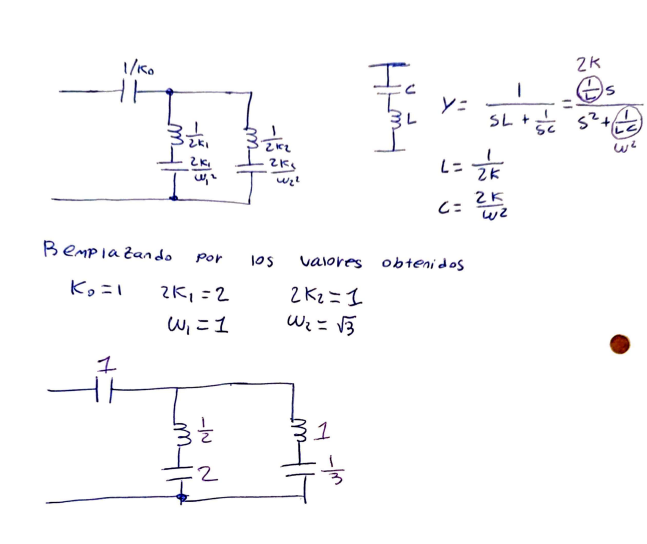 1/K₀
1/2K₁
2K₁/ω₁²
1/2K₂
2K₂/ω₂²
C
L
Y = 1/(SL + 1/SC) = (1/L)S/(S² + 1/LC)
2K
ω²
L = 1/2K
C = 2K/ω²
Remplazando por los valores obtenidos
K₀ = 1 2K₁ = 2 2K₂ = 1
ω₁ = 1 ω₂ = √3
1
1/2
2
1
1/3